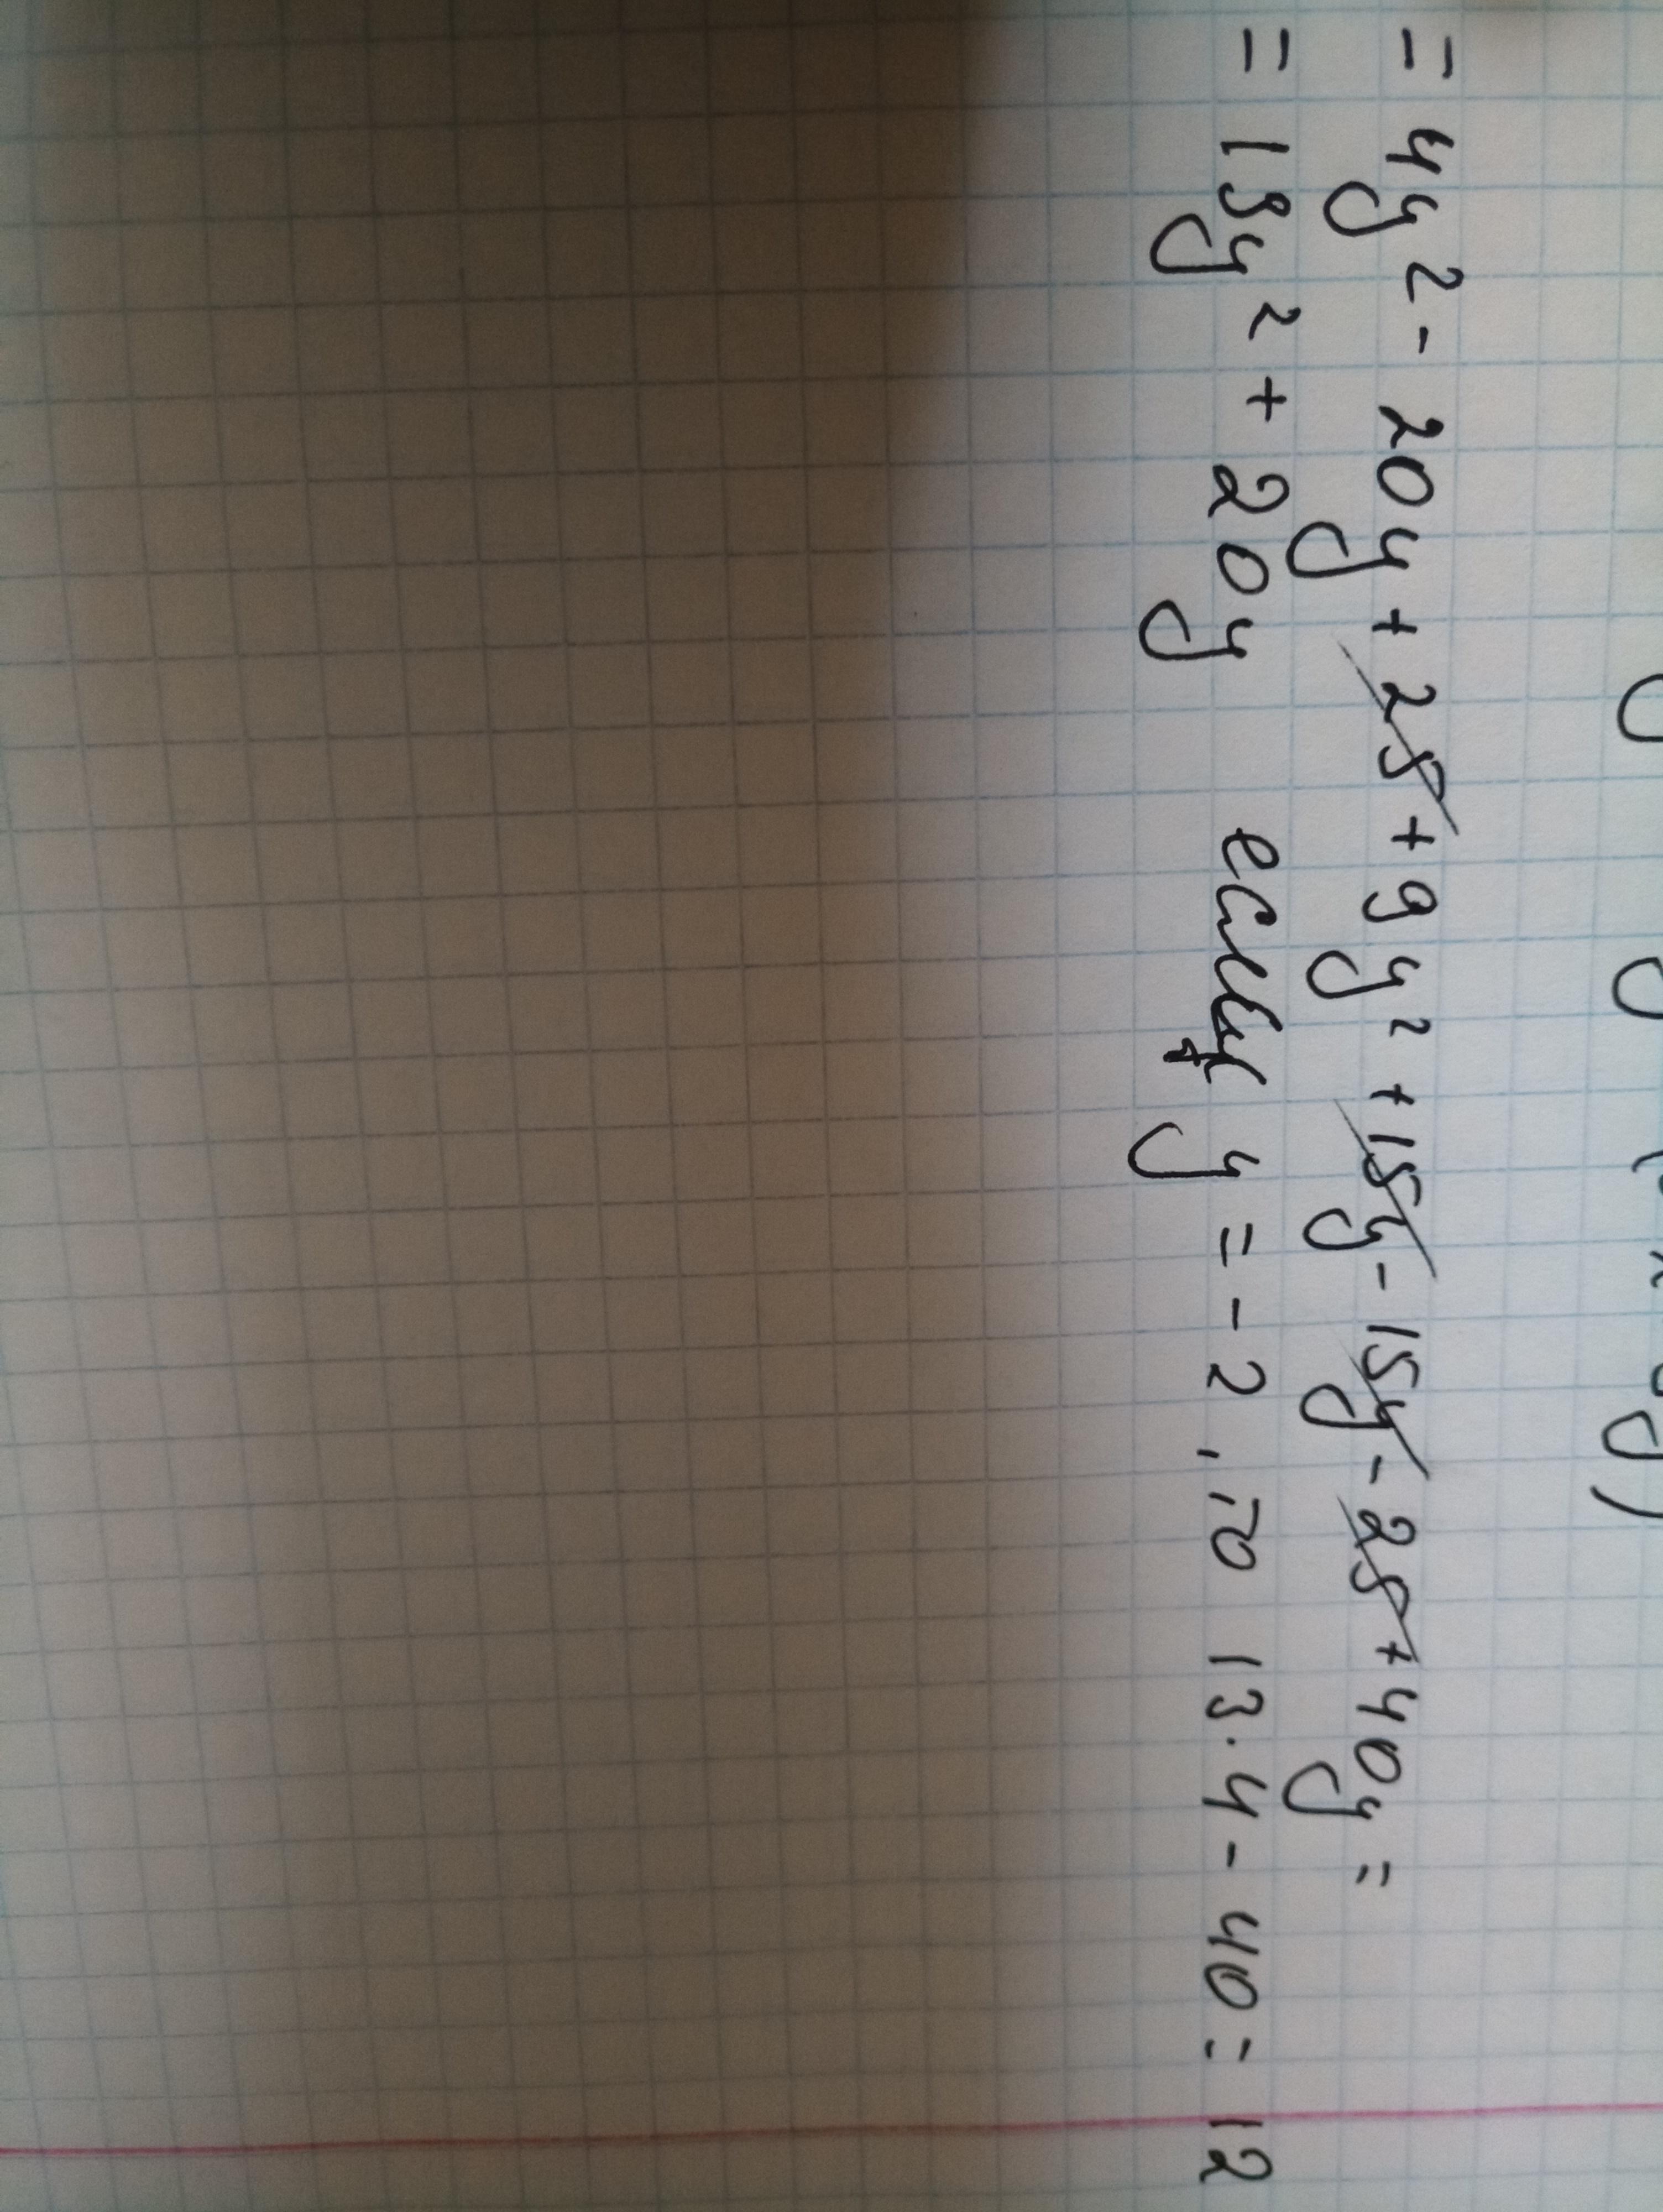 = 4y² - 20y + 25 + 9y² + 15y - 15y - 25 + 40y =
= 13y² + 20y если y = -2, то 13·4 - 40 = 12